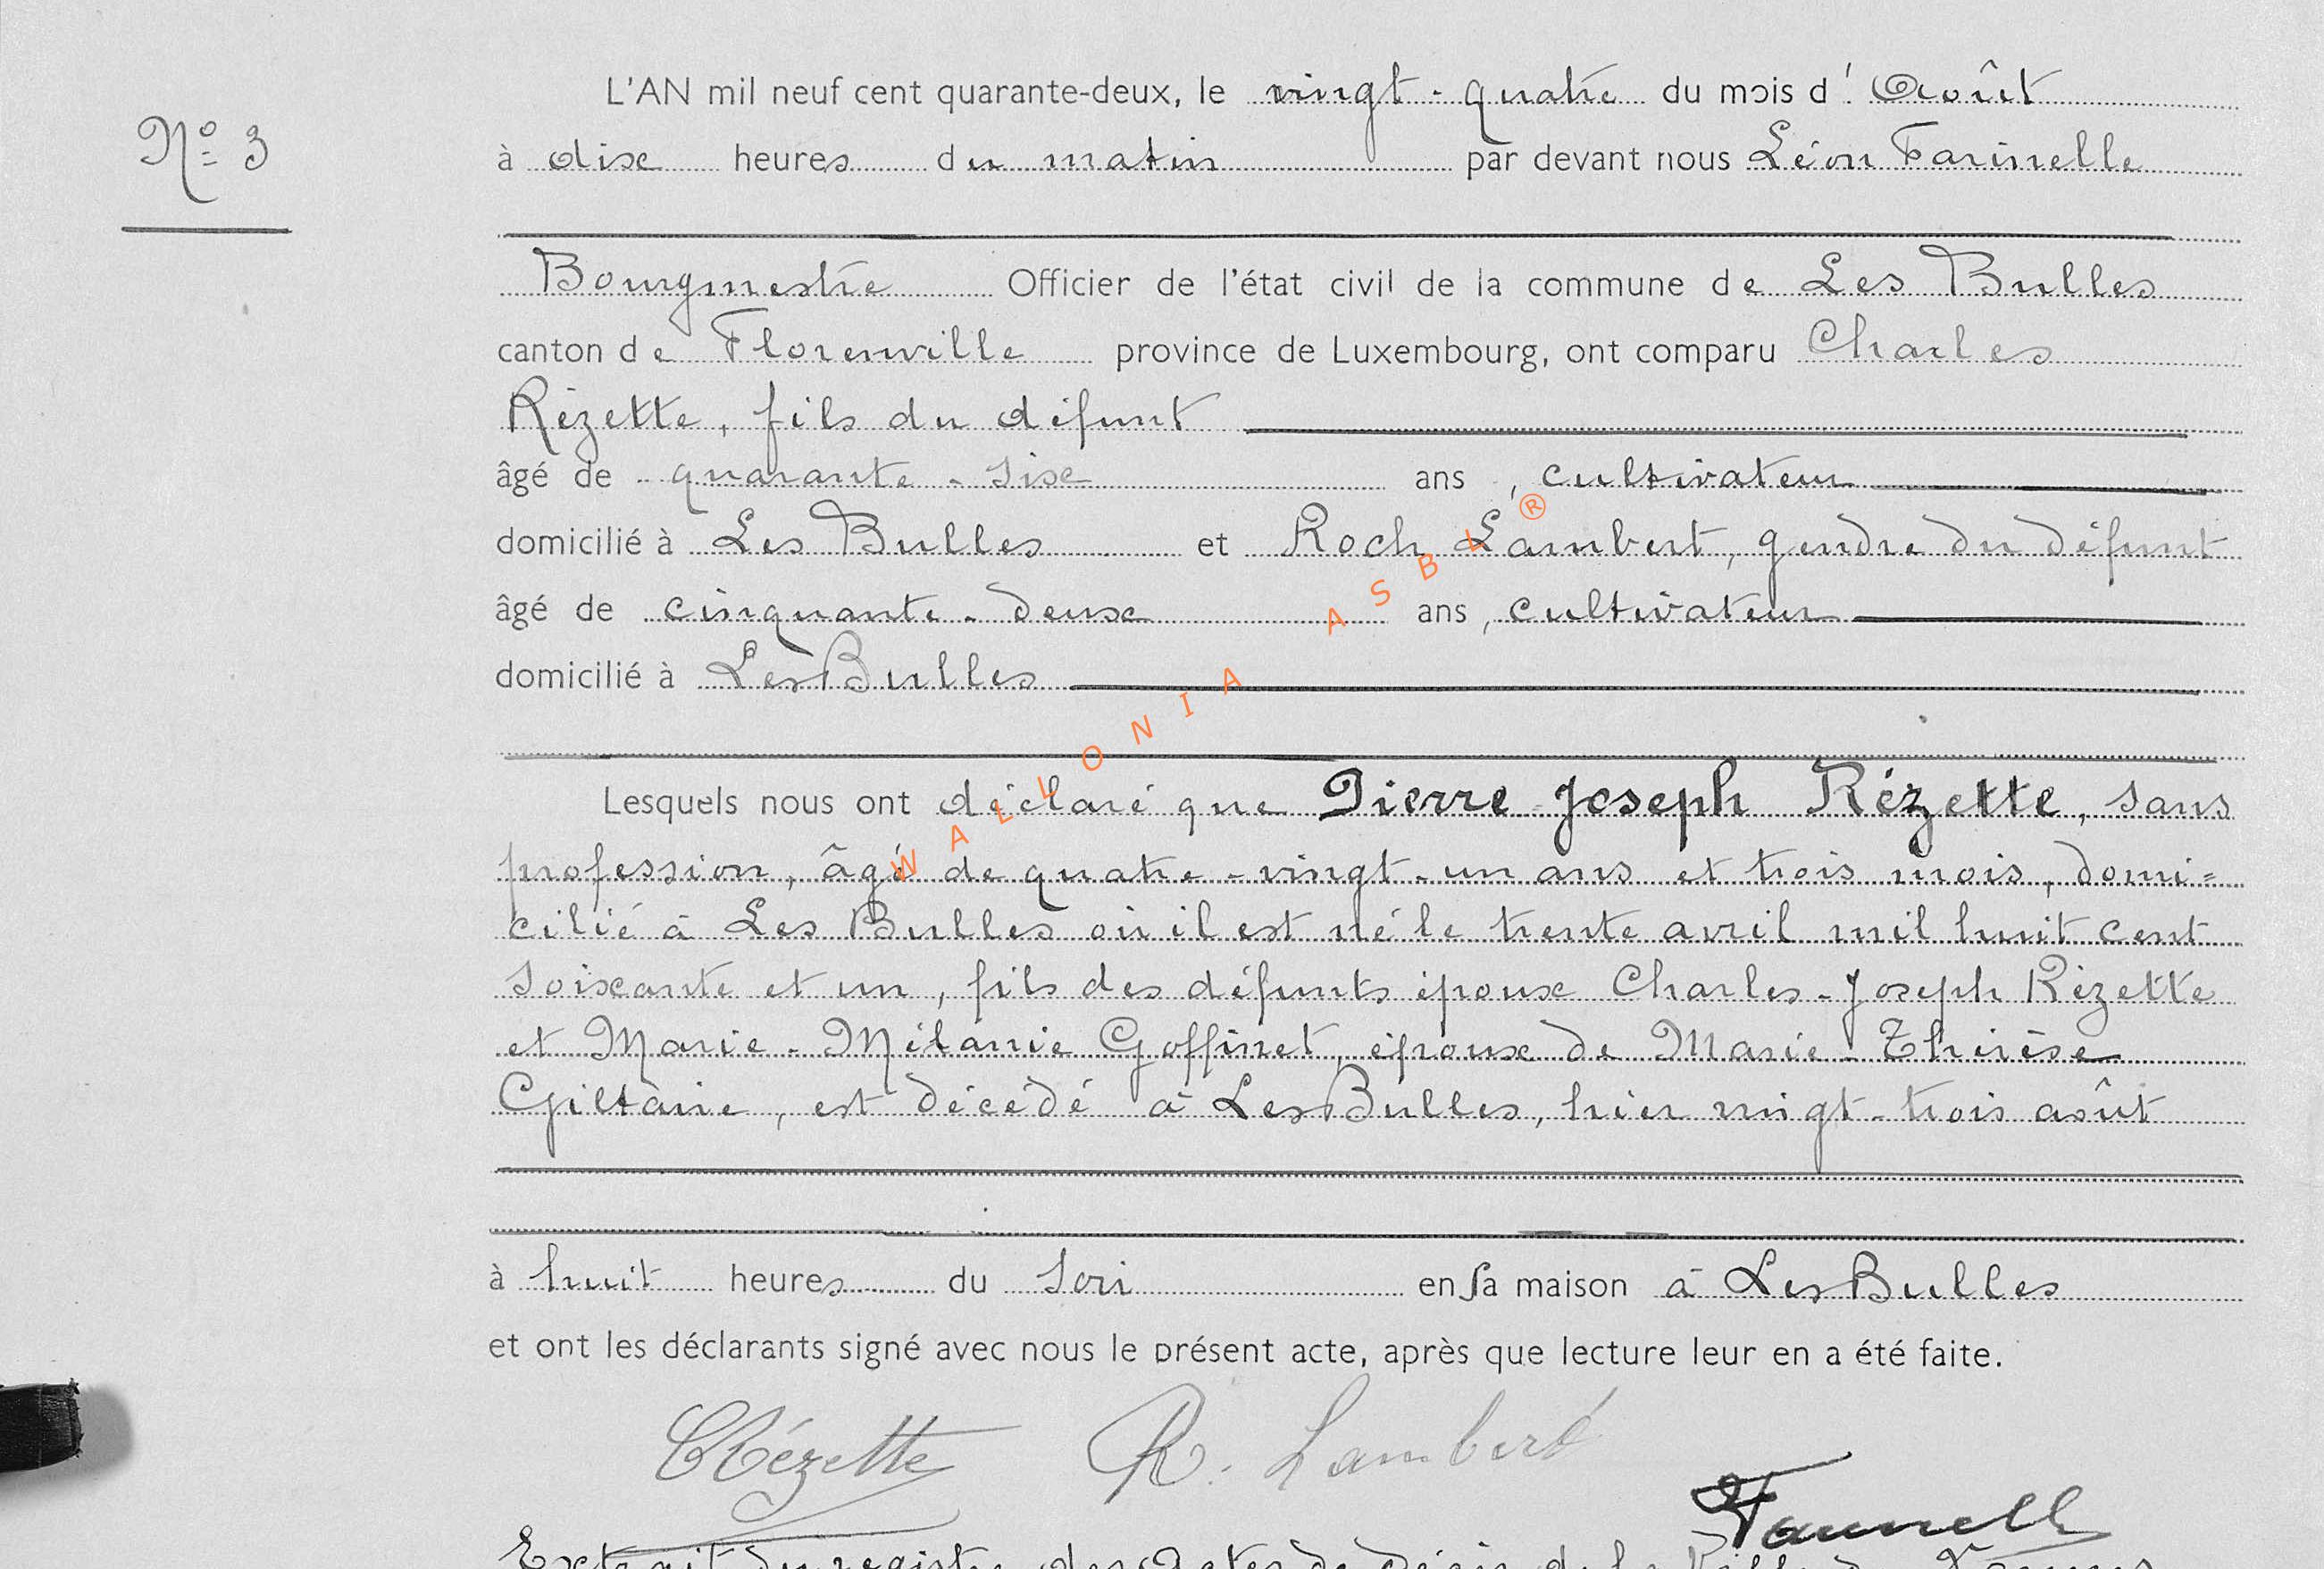 L'AN mil neuf cent quarante-deux, le vingt-quatre du mois d' Août
N° 3
à dix heures du matin par devant nous Léon Farinelle
Bourgmestre Officier de l'état civil de la commune de Les Bulles
canton de Florenville province de Luxembourg, ont comparu Charles
Rézette, fils du défunt
âgé de quarante-six ans, cultivateur
domicilié à Les Bulles et Roch Lambert, gendre du défunt
âgé de cinquante-deux ans, cultivateur
domicilié à Les Bulles
WALLONIA ASBL ®
Lesquels nous ont déclaré que Pierre-Joseph Rézette, sans
profession, âgé de quatre-vingt-un ans et trois mois, domi=
cilié à Les Bulles où il est né le trente avril mil huit cent
soixante et un, fils des défunts époux Charles-Joseph Rézette
et Marie-Mélanie Goffinet, époux de Marie-Thérèse
Giltaire, est décédé à Les Bulles, hier vingt-trois août
à huit heures du soir en sa maison à Les Bulles
et ont les déclarants signé avec nous le présent acte, après que lecture leur en a été faite.
CRézette R. Lambert
Farinelle
Extrait du registre des Actes de Décès de la Ville de